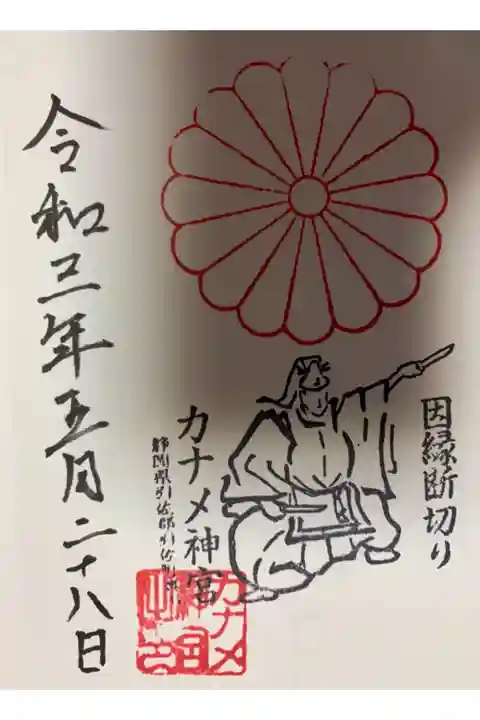 因縁断切り
カナメ神宮
静岡県引佐郡引佐町
令和三年五月二十八日
カナメ
神宮
之印